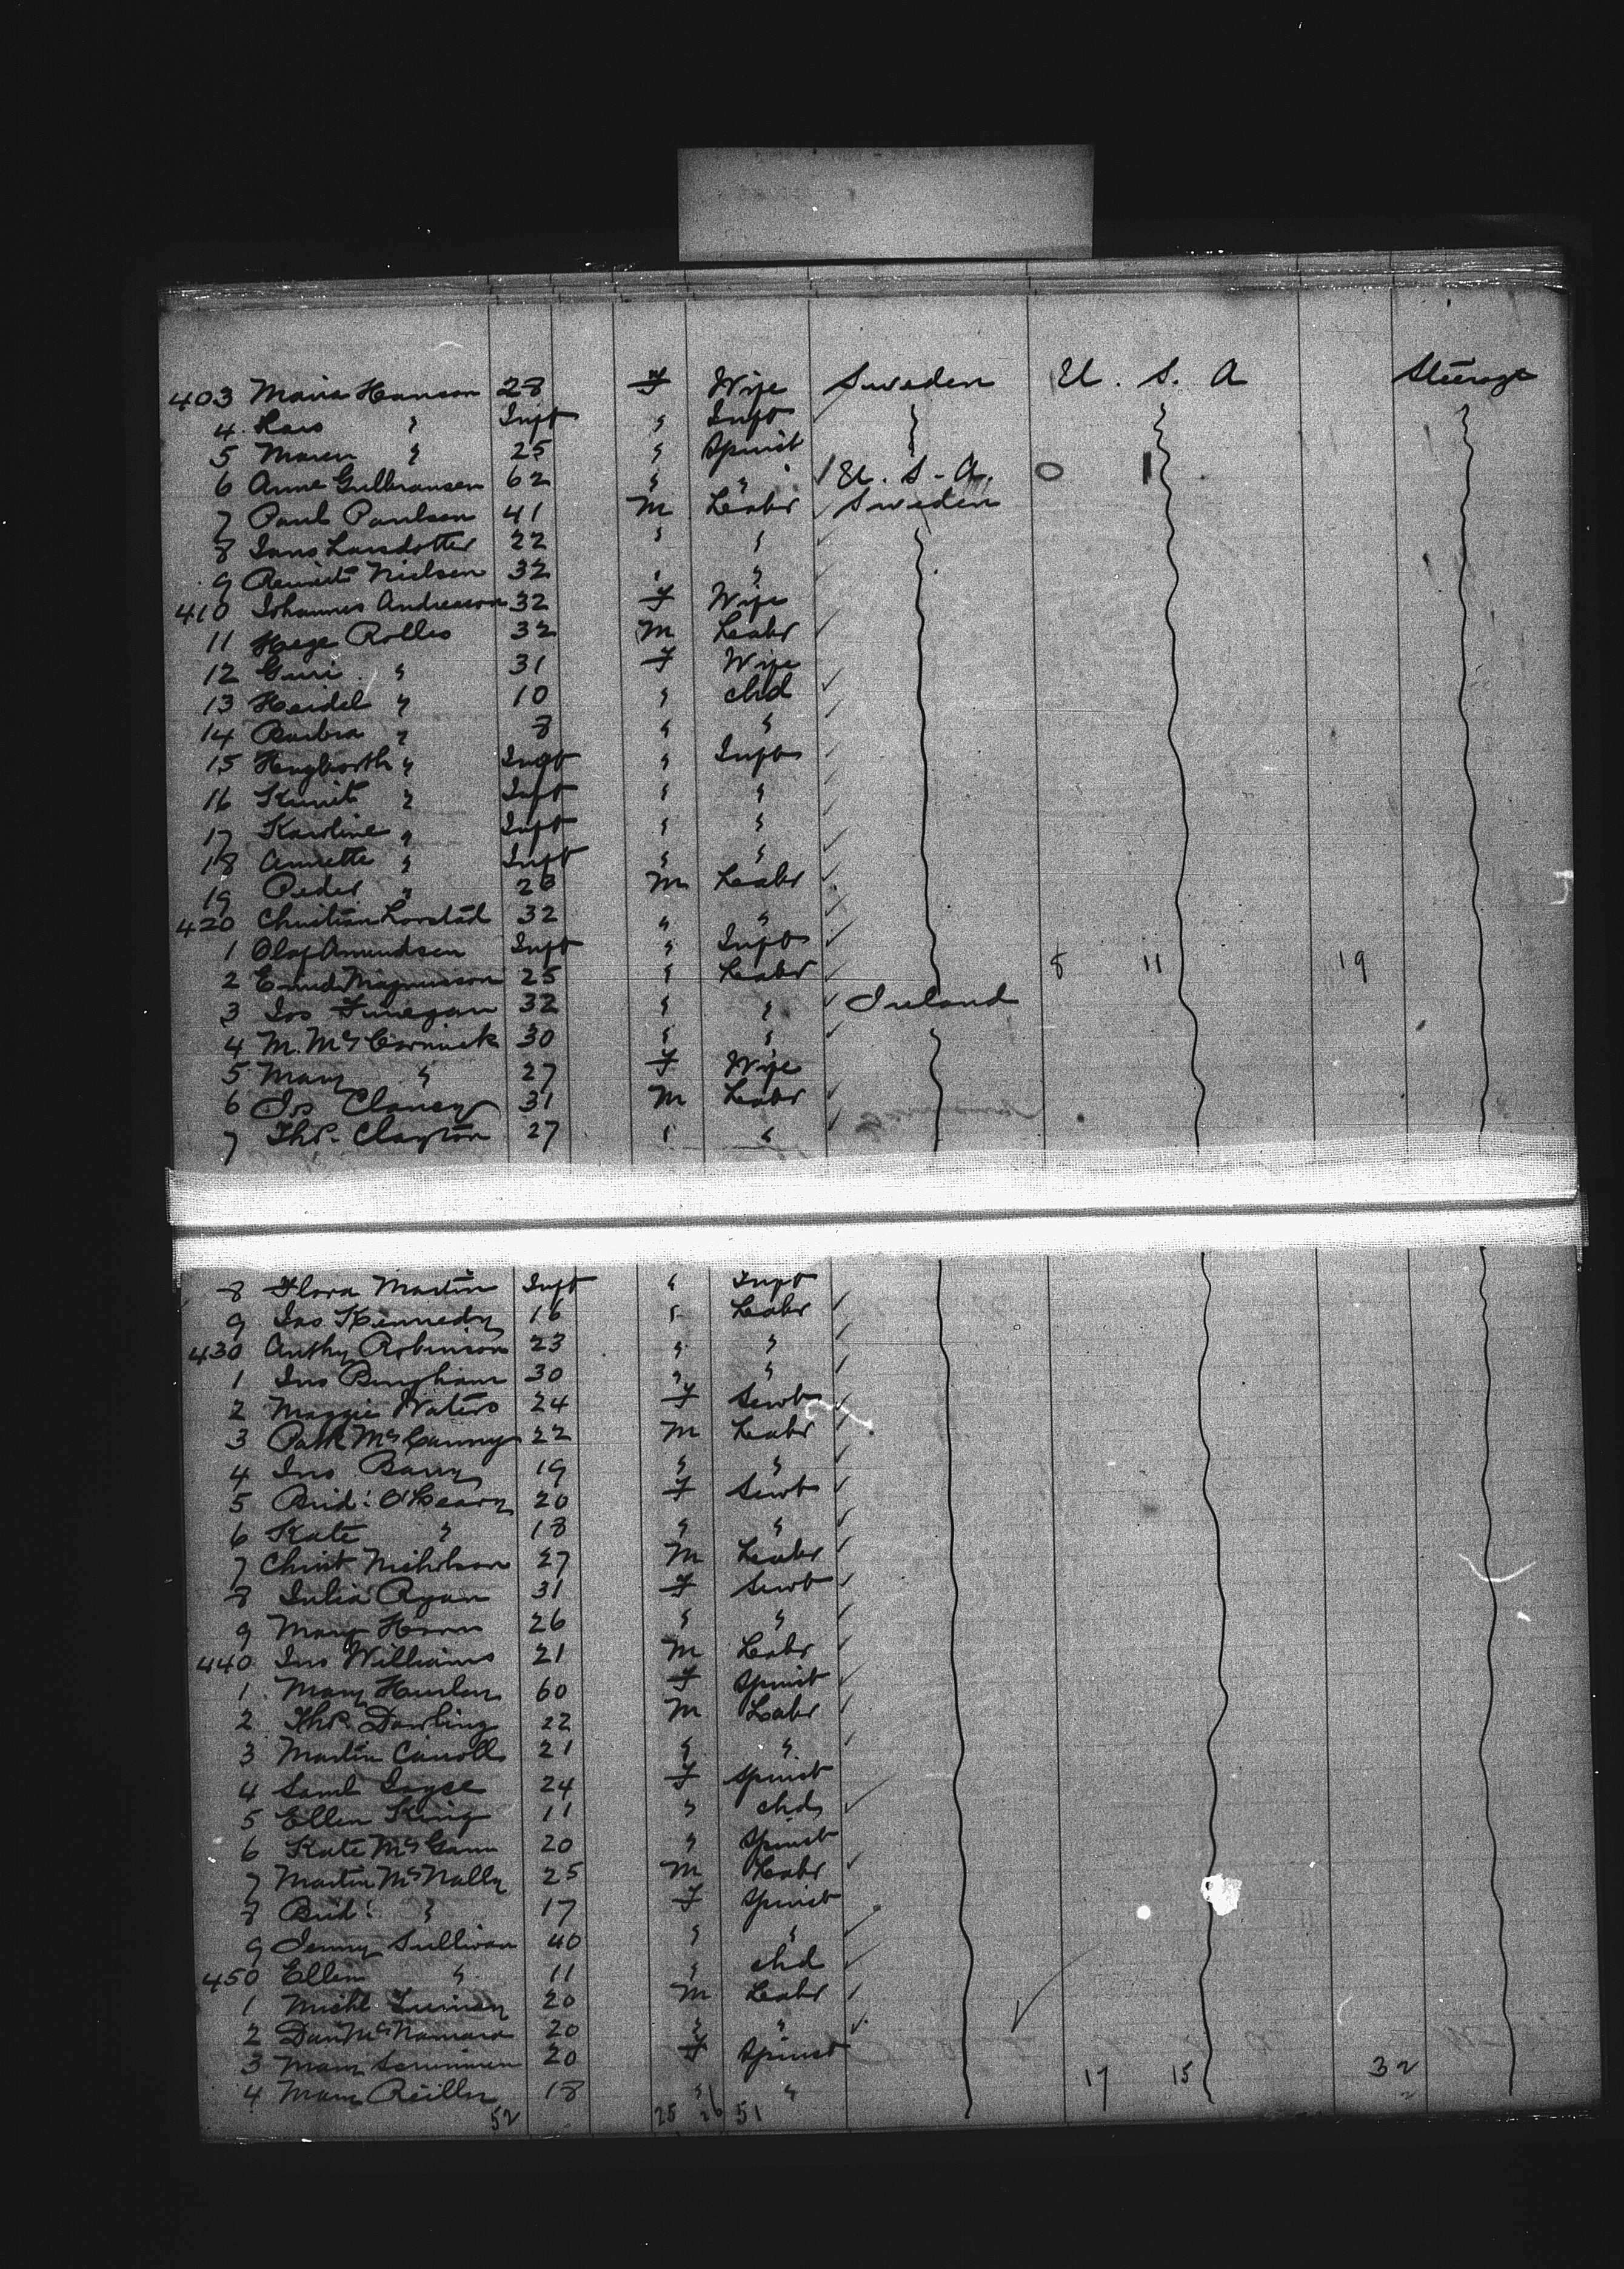 403 Maria Hanson 28 F Wife Sweden U. S. A Steerage
4 Lars " Inft " Inft
5 Maren " 25 " Spinst
6 Anne Gulbransen 62 " " U. S. A. 0 1
7 Paul Paulson 41 M Labr Sweden
8 Jans Larsdotter 22 " "
9 Nielsen 32 " "
410 Johannes Andreason 32 F Wife
11 Hege Rolles 32 M Labr
12 Guri " 31 F Wife
13 Heidel " 10 " chd
14 Barbra " 8 " "
15 " Inft " Inft
16 Kunit " Inft " "
17 Karoline " Inft " "
18 Annette " Inft " "
19 Peder " 26 M Labr
420 Christian Lorstad 32 " "
1 Olaf Amundsen Inft " Inft
2 Magnusson 25 " Labr 8 11 19
3 Jos Finegan 32 " " Ireland
4 M. McCormick 30 " "
5 Mary " 27 F Wife
6 Jos Clancy 31 M Labr
7 Thos. Clayton 27 " "
8 Flora Martin Inft " Inft
9 Jas Kennedy 16 " Labr
430 Anthy Robinson 23 " "
1 Jno Bingham 30 " "
2 Maggie Waters 24 F Servt
3 Patk McCanny 22 M Labr
4 Jno Barry 19 " "
5 Brid: O'Leary 20 F Servt
6 Kate " 18 " "
7 Christ Nicholson 27 M Labr
8 Julia Ryan 31 F Servt
9 Mary Horn 26 " "
440 Jno Williams 21 M Labr
1 Mary Hurley 60 F Spinst
2 Thos. Dowling 22 M Labr
3 Martin Carroll 21 " "
4 Saml Joyce 24 F Spinst
5 Ellen King 11 " chd
6 Kate McGann 20 " Spinst
7 Martin McNally 25 M Labr
8 Brid: " 17 F Spinst
9 Jenny Sullivan 40 " "
450 Ellen " 11 " chd
1 Michl 20 M Labr
2 Danl McNamara 20 " "
3 Mary 20 F Spinst
4 Mary Reilly 18 " " 17 15 32
52 25 26 51